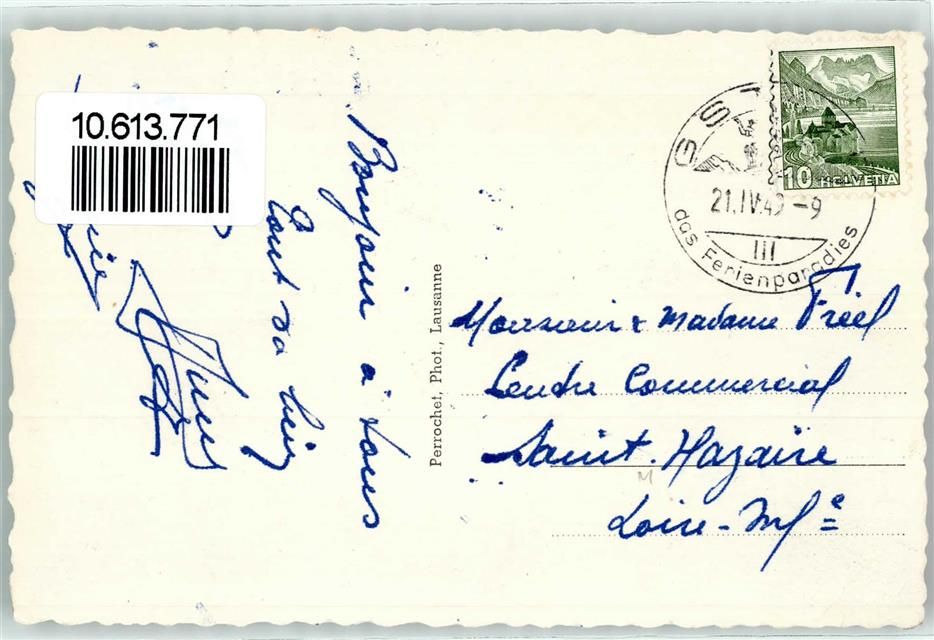 10.613.771
Bonjour à tous
tout va bien
Perrochet, Phot., Lausanne
GST
21.IV.49 -9
III
das Ferienparadies
10 HELVETIA
Monsieur & Madame Fréel
Centre Commercial
Saint. Nazaire
Loire-Infe